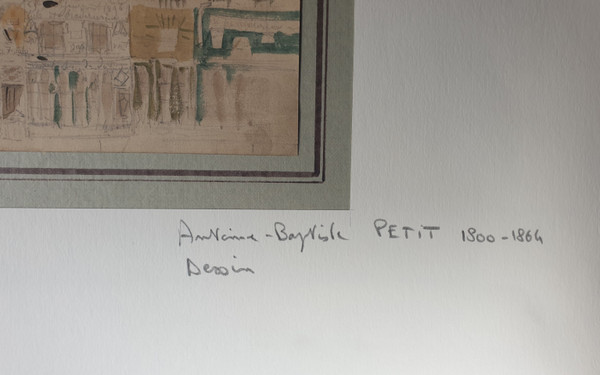 Antoine-Baptiste PETIT 1800-1864
Dessin